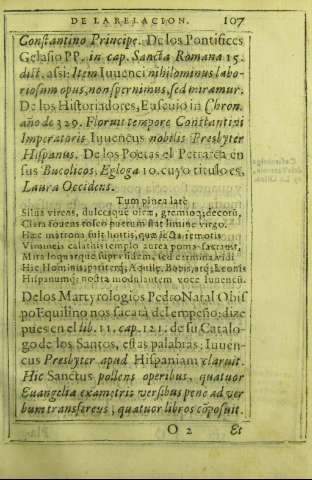 DE LA RELACION. 107
Constantino Principe. De los Pontifices
Gelasio PP. in cap. Sancta Romana 15.
dist. assi: Item Iuuenci nihilominus labo-
riosum opus, non spernimus, sed miramur.
De los Historiadores, Eusevio in Chron.
año de 329. Floruit tempore Constantini
Imperatoris Iuuencus nobilis Presbyter
Hispanus. De los Poetas el Petrarca en
sus Bucolicos. Egloga 10. cuyo titulo es,
Laura Occidens.
Tum pinea latè,
Silua virens, dulcesque oræ, gremioq; decorũ,
Clara fouens tosco puerum stat limine virgo.
Hæc matrona fuit hostis, quæ iecta remotis
Vimineis calathis templo aurea poma sacrauit,
Mira loquar que supra fidem, sed carmina vidi
Hic Hominis, pariterq; Aquilę, Bouis, atq; Leonis
Hispanumq; nostra modulantem voce Iuuencũ.
De los Martyrologios Pedro Natal Obis
po Equilino nos sacarà del empeño; dize
pues en el lib. 11. cap. 121. de su Catalo-
go de los Santos, estas palabras: Iuuen-
cus Presbyter apud Hispaniam claruit.
Hic Sanctus pollens operibus, quatuor
Euangelia exametris versibus penè ad ver
bum transferens, quatuor libros cõposuit.
O 2 Et